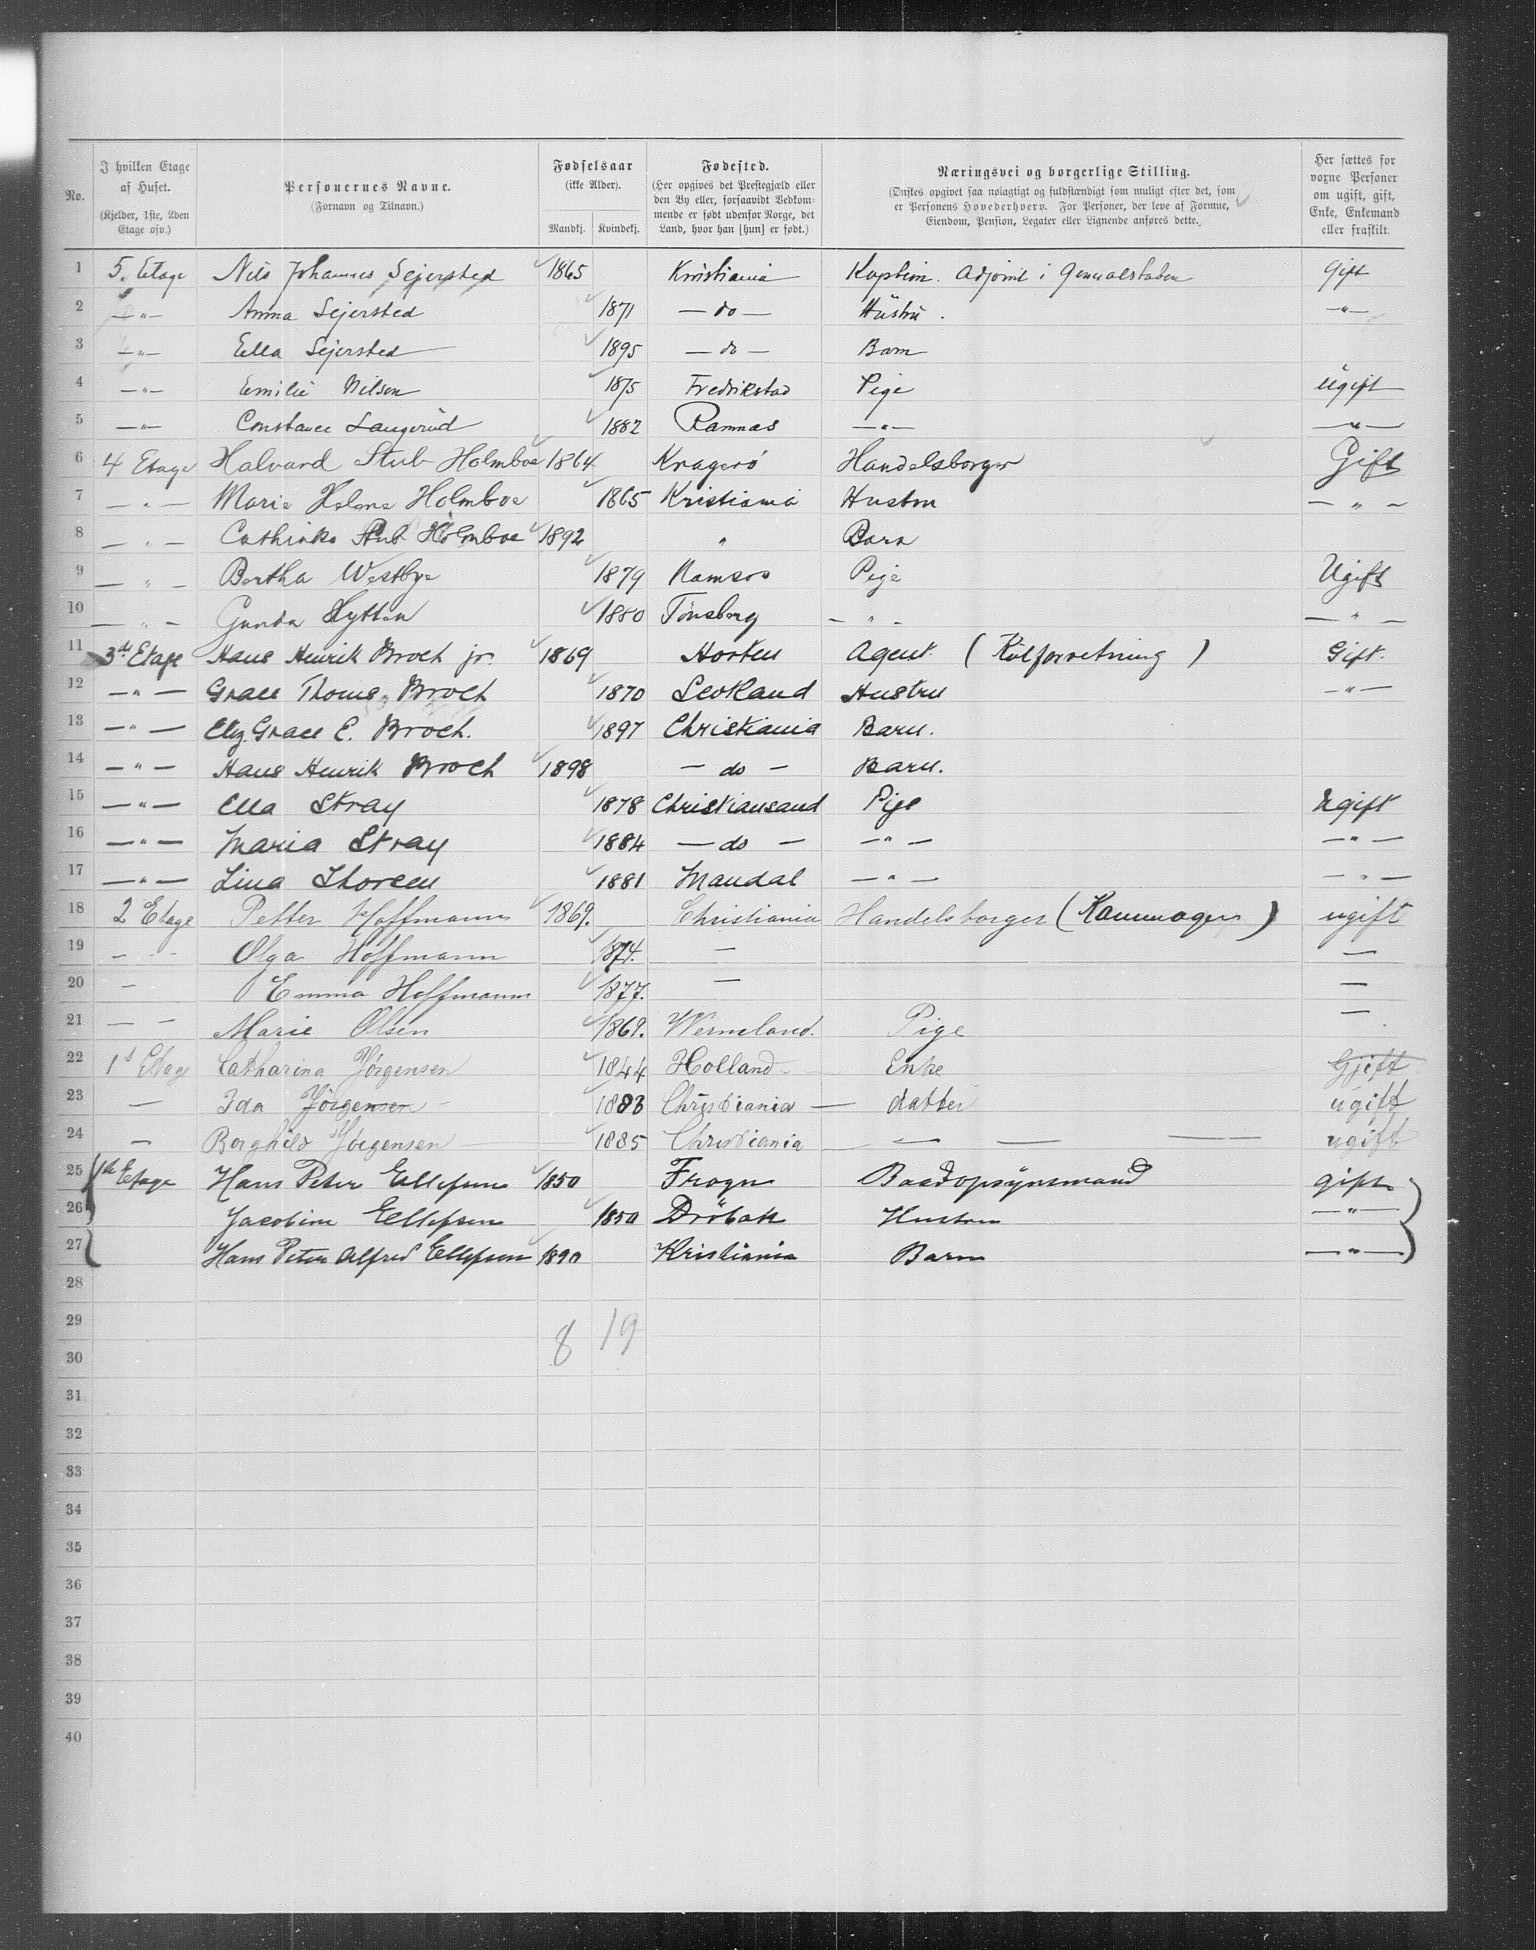 No. | I hvilken Etage af Huset. (Kjelder, 1ste, 2den Etage osv.) | Personernes Navne. (Fornavn og Tilnavn.) | Fødselsaar (ikke Alder). Mandkj. | Kvindekj. | Fødested. (Her opgives det Prestegjæld eller den By eller, forsaavidt Vedkommende er født udenfor Norge, det Land, hvor han [hun] er født.) | Næringsvei og borgerlige Stilling. (Ønskes opgivet saa nøiagtigt og fuldstændigt som muligt efter det, som er Personens Hovederhverv. For Personer, der leve af Formue, Eiendom, Pension, Legater eller Lignende anføres dette.) | Her sættes for voxne Personer om ugift, gift, Enke, Enkemand eller fraskilt.
1 5. Etage Nils Johannes Sejersted 1865 Kristiania Kaptein. Adjoint i Generalstaben Gift
2 —"— Anna Sejersted 1871 — do — Hüstru. —"—
3 —"— Ella Sejersted 1895 — do — Barn
4 —"— Emilie Nilsen 1875 Fredrikstad Pige ügift
5 —"— Constance Langerüd 1882 Ramnæs —"— —"—
6 4 Etage Halvard Stub Holmboe 1864 Kragerö Handelsborger Gift
7 —"— Marie Helene Holmboe 1865 Kristiania Hustru —"—
8 —"— Cathinka Stub Holmboe 1892 " Barn
9 —"— Bertha Westbye 1879 Namsos Pige Ugift
10 —"— Gunda Hytten 1880 Tönsberg —"— —"—
11 3de Etage Hans Henrik Broch jr. 1869 Horten Agent (Kulforretning) Gift.
12 —"— Grace Thoms Broch 1870 Scotland Hustru —"—
13 —"— Elg. Grace E. Broch. 1897 Christiania Barn.
14 —"— Hans Henrik Broch 1898 — do — Barn.
15 —"— Ella Stray 1878 Christiansand Pige Ugift
16 —"— Maria Stray 1884 — do — —"— —"—
17 —"— Lina Thoreen 1881 Mandal —"— —"—
18 2 Etage Petter Hoffmann 1869. Christiania Handelsborger (Kammager) ugift
19 — " — Olga Hoffmann 1874. — —
20 — Emma Hoffmann 1877. — —
21 — — Marie Olsen 1869. Wermeland. Pige —
22 1st Etage Catharina Jörgensen 1844 Holland — Enke Gjift
23 — Ida Jörgensen — 1883 Christiania — datter ugift
24 — Borghild Jörgensen — 1885 Christiania — — — ugift
25 1ste Etage Hans Peter Ellefsen 1850 Frogn Baadopsynsmand gift
26 Jacobine Ellefsen 1850 Dröbak Hustru —"—
27 Hans Peter Alfred Ellefsen 1890 Kristiania Barn —"—
28
29
8 19
30
31
32
33
34
35
36
37
38
39
40